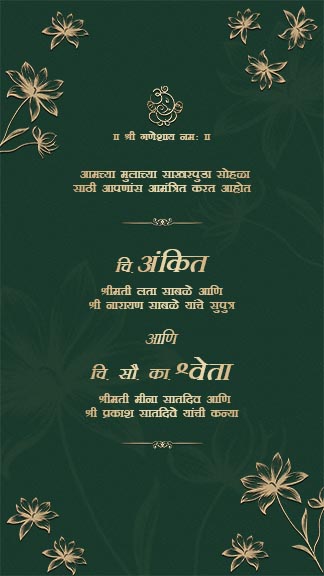 ॥ श्री गणेशाय नमः ॥
आमच्या मुलाच्या साखरपुडा सोहळा
साठी आपणांस आमंत्रित करत आहोत
चि. अंकित
श्रीमती लता साबळे आणि
श्री नारायण साबळे यांचे सुपुत्र
आणि
चि. सौ. का. श्वेता
श्रीमती मीना सातदिवे आणि
श्री प्रकाश सातदिवे यांची कन्या